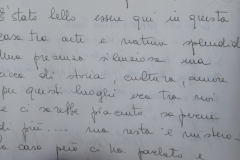 E' stato bello essere qui in questa
casa tra arte e natura splendida
Una presenza silenziosa ma
ricca di storia, cultura, amore
per questi luoghi era tra noi
e ci sarebbe piaciuto saperne
di più.... ma resta il mistero.
la casa però ci ha parlato e